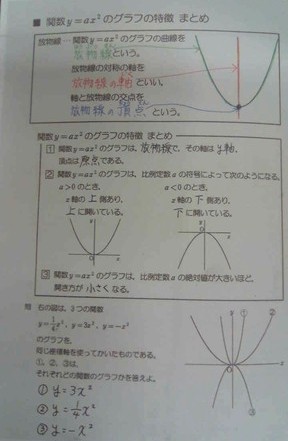 ■ 関数 y=ax² のグラフの特徴 まとめ
放物線…関数 y=ax² のグラフの曲線を
放物線 という。
放物線の対称の軸を
放物線の軸 といい、
軸と放物線の交点を
放物線の頂点 という。
関数 y=ax² のグラフの特徴 まとめ
1 関数 y=ax² のグラフは、放物線で、その軸は y軸、
頂点は原点である。
2 関数 y=ax² のグラフは、比例定数 a の符号によって次のようになる。
a>0 のとき、 a<0 のとき、
x 軸の 上 側あり、 x 軸の 下 側あり、
上 に開いている。 下 に開いている。
y
x
O
y
O
x
3 関数 y=ax² のグラフは、比例定数 a の絶対値が大きいほど、
開き方が 小さく なる。
右の図は、3つの関数
y=1/4x²、y=3x²、y=-x²
のグラフを、
同じ座標軸を使ってかいたものである。
①、②、③は、
それぞれどの関数のグラフか答えよ。
① y=3x²
② y=1/4x²
③ y=-x²
y
①
②
x
O
③